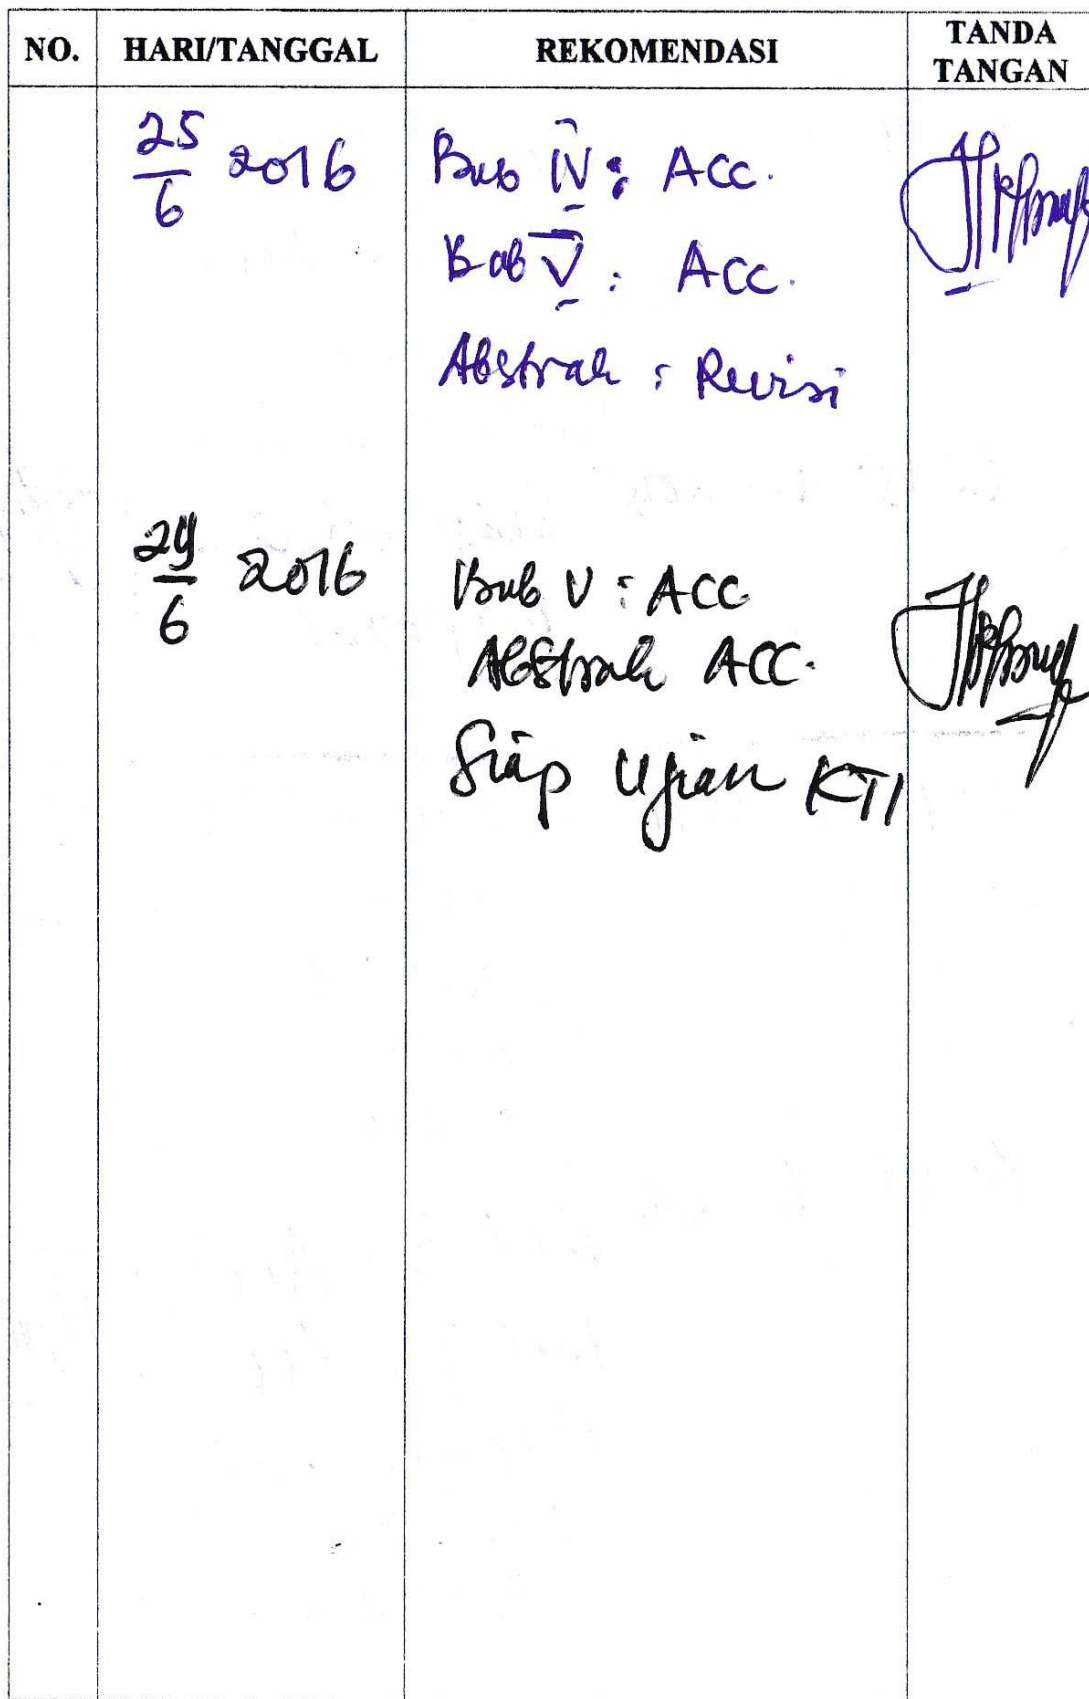 NO. HARI/TANGGAL REKOMENDASI TANDA TANGAN
25/6 2016 Bab IV : Acc.
Bab V : Acc.
Abstrak : Revisi
29/6 2016 Bab V : ACC
Abstrak ACC.
Siap Ujian KTI